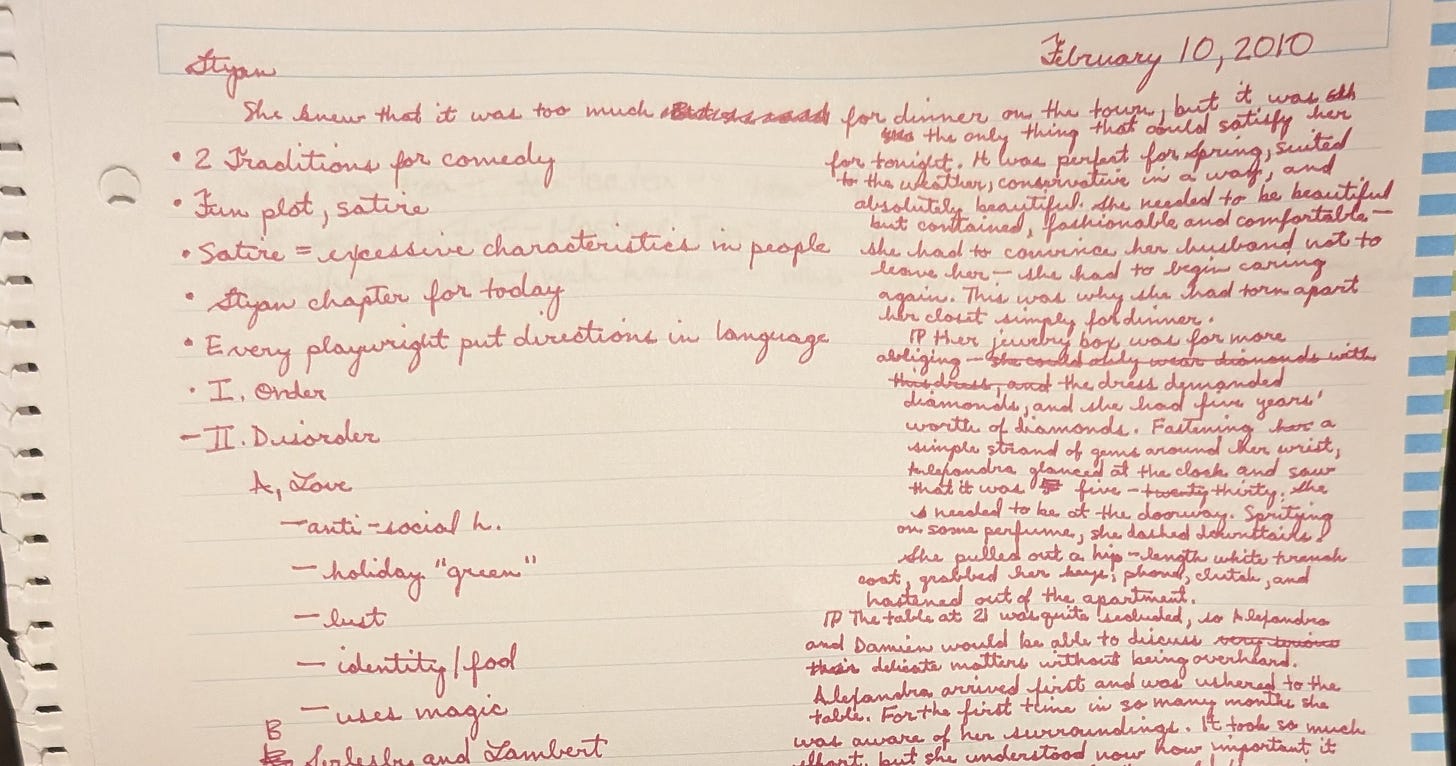 February 10, 2010
Styan
She knew that it was too much for dinner on the town, but it was
the only thing that could satisfy her
for tonight. It was perfect for spring, suited
to the weather, conservative in a way, and
absolutely beautiful. She needed to be beautiful
but contained, fashionable and comfortable—
she had to convince her husband not to
leave her— she had to begin caring
again. This was why she had torn apart
her closet simply for dinner.
¶ Her jewelry box was far more
obliging— she could only wear diamonds with
this dress, and the dress demanded
diamonds, and she had five years'
worth of diamonds. Fastening her a
simple strand of gems around her wrist,
Alejandra glanced at the clock and saw
that it was five-twenty thirty. She
needed to be at the doorway. Spritzing
on some perfume, she dashed downstairs.
She pulled out a hip-length white trench
coat, grabbed her keys, phone, clutch, and
hastened out of the apartment.
¶ The table at 21 was quite secluded, so Alejandra
and Damien would be able to discuss very
their delicate matters without being overheard.
Alejandra arrived first and was ushered to the
table. For the first time in so many months she
was aware of her surroundings. It took so much
effort, but she understood now how important it
• 2 Traditions for comedy
• Fun plot, satire
• Satire = excessive characteristics in people
• Styan chapter for today
• Every playwright put directions in language
• I. Order
— II. Disorder
A, Love
— anti-social h.
— holiday "green"
— lust
— identity/fool
— uses magic
B
and Lambert